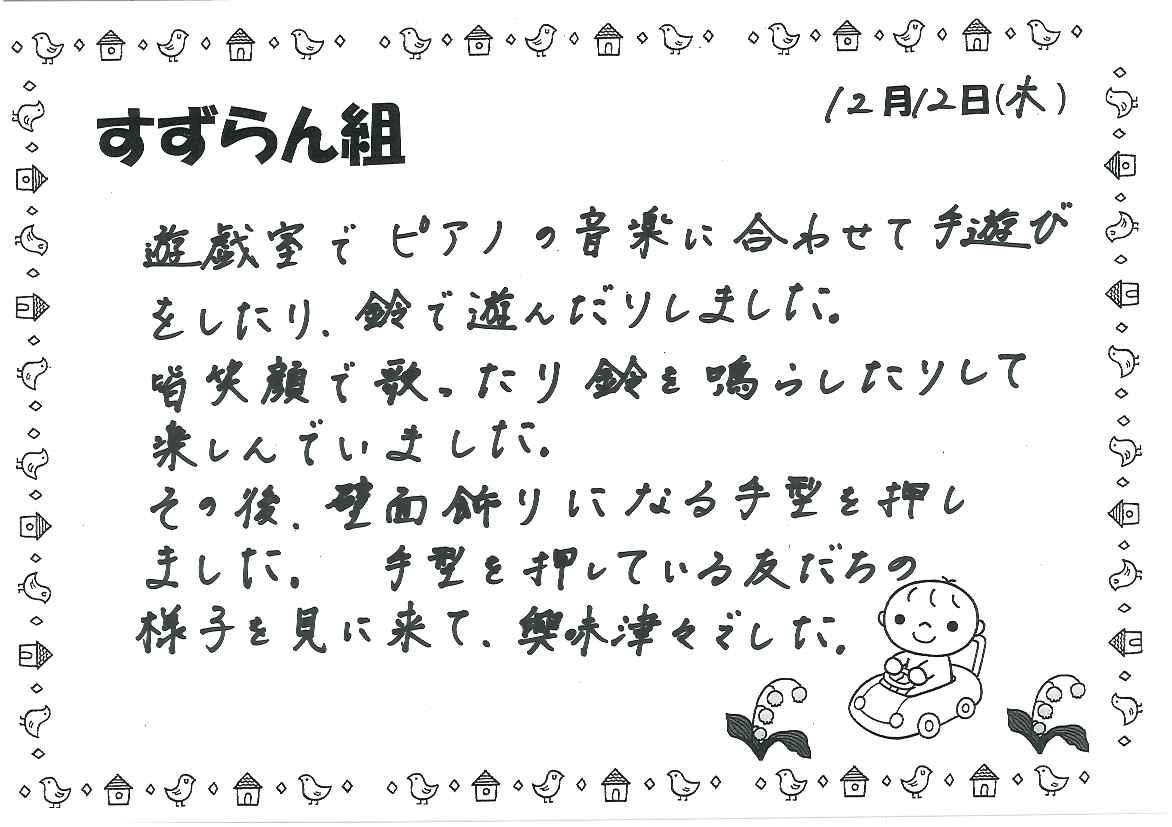 12月12日(木)
すずらん組
遊戯室でピアノの音楽に合わせて手遊び
をしたり、鈴で遊んだりしました。
皆笑顔で歌ったり鈴を鳴らしたりして
楽しんでいました。
その後、壁面飾りになる手型を押し
ました。 手型を押している友だちの
様子を見に来て、興味津々でした。